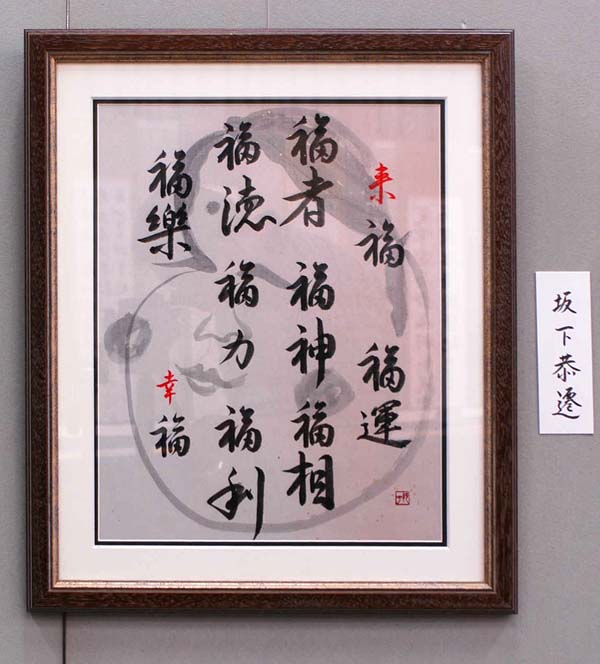 来福 福運
福者 福神 福相
福徳 福力 福利
福樂
幸福
坂下恭遷